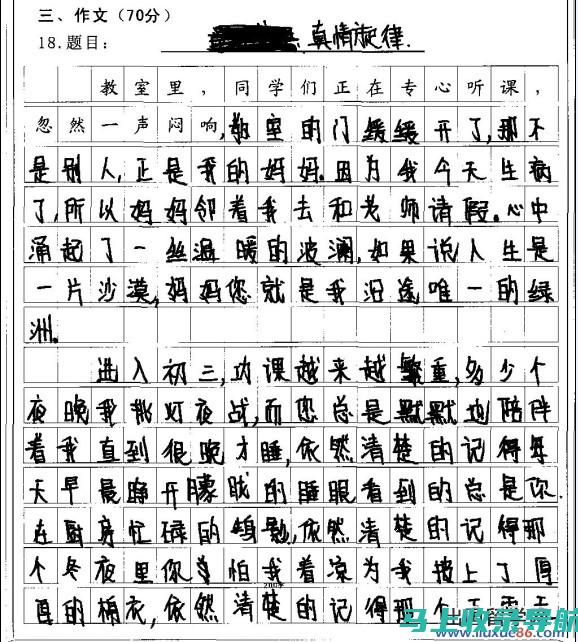 三、作文（70分）
18.题目：真情旋律.
教室里，同学们正在专心听课，
忽然一声闷响,教室的门缓缓开了,那不
是别人,正是我的妈妈。因为我今天生病
了,所以妈妈邻着我去和老师请假。心中
涌起了一丝温暖的波澜,如果说人生是
一片沙漠,妈妈您就是我沿途唯一的绿
洲。
进入初三,功课越来越繁重,多少个
夜晚我挑灯夜战,而您总是默默地陪伴
着我直到很晚才睡,依然清楚的记得每
天早晨睁开朦胧的睡眼看到的总是你
在厨房忙碌的身影,依然清楚的记得那
个冬夜里你怕我着凉为我披上了厚
厚的棉衣,依然清楚的记得那个
马上收录导航
www.liuxue86.com